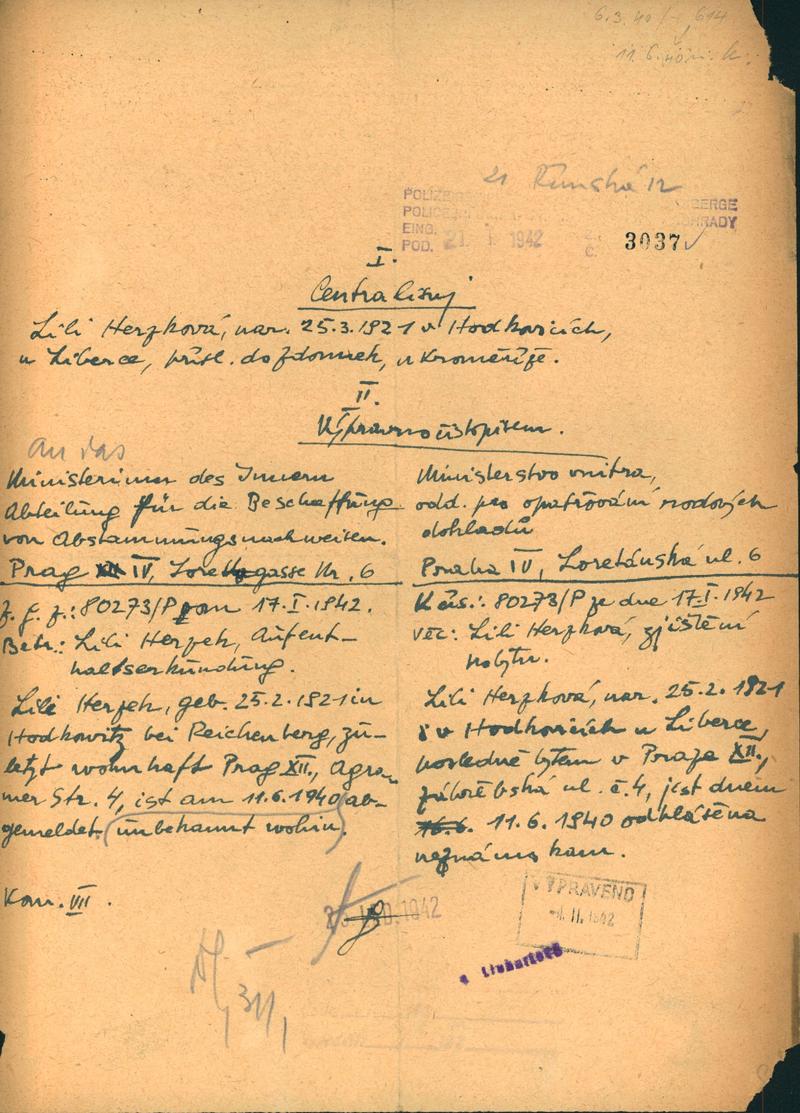 6.3.40 614
11.6.40
21 Římská 12
POLIZEI BERGE
POLICEJNÍ HRADY
EING.
POD. 21. I. 1942 Č. 3037
I.
Centrálisuj
Lili Herzková, nar. 25.3.1921 v Hodkovicích,
u Liberce, přísl. do Zdounek, u Kroměříže.
II.
Výpravno čistopisem.
An das
Ministerium des Innern
Abteilung für die Beschaffung
von Abstammungsnachweisen.
Prag IV, Lorettogasse Nr. 6
z. g. z.: 80273/P vom 17.I.1942.
Betr.: Lili Herzek, Aufent-
haltserkundung.
Lili Herzek, geb. 25.2.1921 in
Hodkowitz bei Reichenberg, zu-
letzt wohnhaft Prag XII., Agra-
mer Str. 4, ist am 11.6.1940 ab-
gemeldet unbekannt wohin.
Kom. VII.
Ministerstvo vnitra,
odd. pro opatřování rodových
dokladů
Praha IV, Loretánská ul. 6
K čís.: 80273/P ze dne 17.I.1942
Věc: Lili Herzková, zjištění
pobytu.
Lili Herzková, nar. 25.2.1921
v Hodkovicích u Liberce,
posledně bytem v Praze XII.,
záhřebská ul. č. 4, jest dnem
16.6. 11.6.1940 odhlášena
neznámo kam.
1942
VYPRAVENO
II. 1942